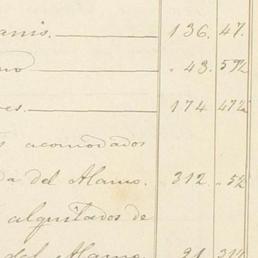 anis. 136. 47.
no 43. 59½
res. 174 47½
s acomodados
da del Alamo. 312 52
alquilados de
del Alamo 21 31½